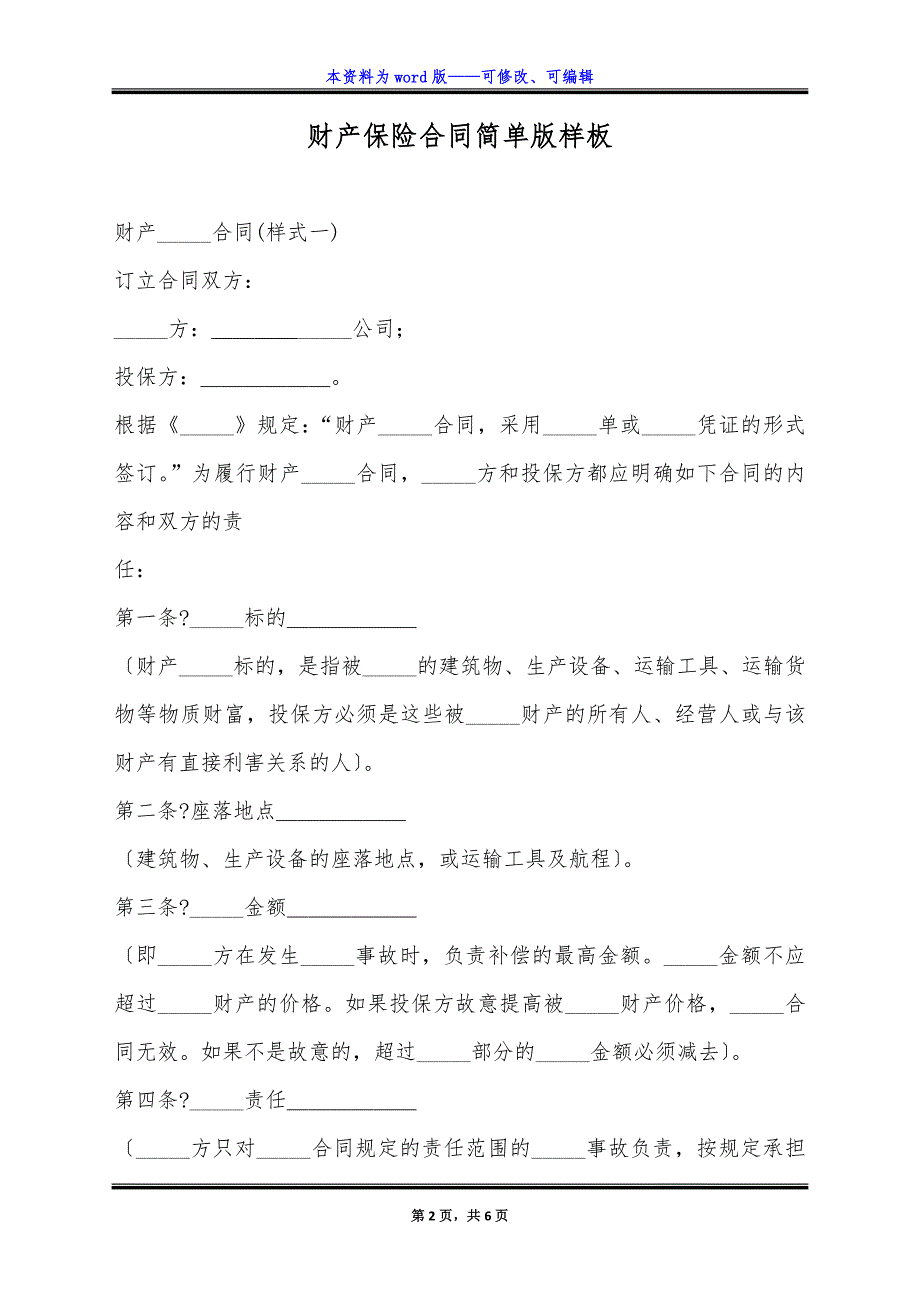 本资料为 word 版——可修改、可编辑
财产保险合同简单版样板
财产_____合同(样式一)
订立合同双方：
_____方：_____________公司；
投保方：____________。
根据《_____》规定：“财产_____合同，采用_____单或_____凭证的形式
签订。”为履行财产_____合同，_____方和投保方都应明确如下合同的内
容和双方的责
任：
第一条?_____标的____________
〔财产_____标的，是指被_____的建筑物、生产设备、运输工具、运输货
物等物质财富，投保方必须是这些被_____财产的所有人、经营人或与该
财产有直接利害关系的人〕。
第二条?座落地点____________
〔建筑物、生产设备的座落地点，或运输工具及航程〕。
第三条?_____金额____________
〔即_____方在发生_____事故时，负责补偿的最高金额。_____金额不应
超过_____财产的价格。如果投保方故意提高被_____财产价格，_____合
同无效。如果不是故意的，超过_____部分的_____金额必须减去〕。
第四条?_____责任____________
〔_____方只对_____合同规定的责任范围的_____事故负责，按规定承担
第 2 页，共 6 页